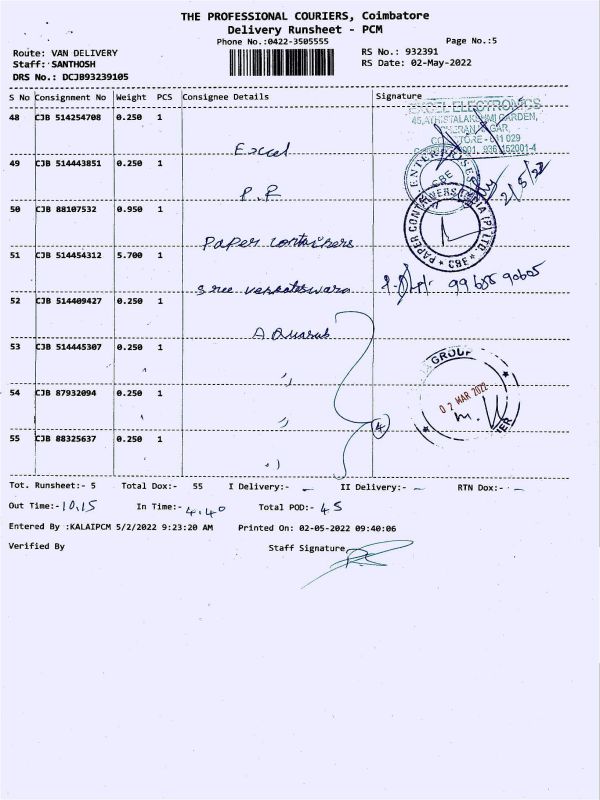 THE PROFESSIONAL COURIERS, Coimbatore
Delivery Runsheet - PCM
Phone No.:0422-3505555
Page No.:5
Route: VAN DELIVERY
RS No.: 932391
Staff: SANTHOSH
RS Date: 02-May-2022
DRS No.: DCJB93239105
S No Consignment No Weight PCS Consignee Details Signature
48 CJB 514254708 0.250 1
Excel
EXCEL ELECTRONICS
49 CJB 514443851 0.250 1
P.R
2/5/22
50 CJB 88107532 0.950 1
Paper containers
PAPER CONTAINERS INDIA (P) LTD.
* CBE *
51 CJB 514454312 5.700 1
Sree venkateswara
99655 90605
52 CJB 514409427 0.250 1
A.Quarub
53 CJB 514445307 0.250 1
"
GROUP
02 MAR 2022
54 CJB 87932094 0.250 1
"
4
55 CJB 88325637 0.250 1
"
Tot. Runsheet:- 5 Total Dox:- 55 I Delivery:- - II Delivery:- - RTN Dox:- -
Out Time:- 10.15 In Time:- 4.40 Total POD:- 45
Entered By :KALAIPCM 5/2/2022 9:23:20 AM Printed On: 02-05-2022 09:40:06
Verified By Staff Signature